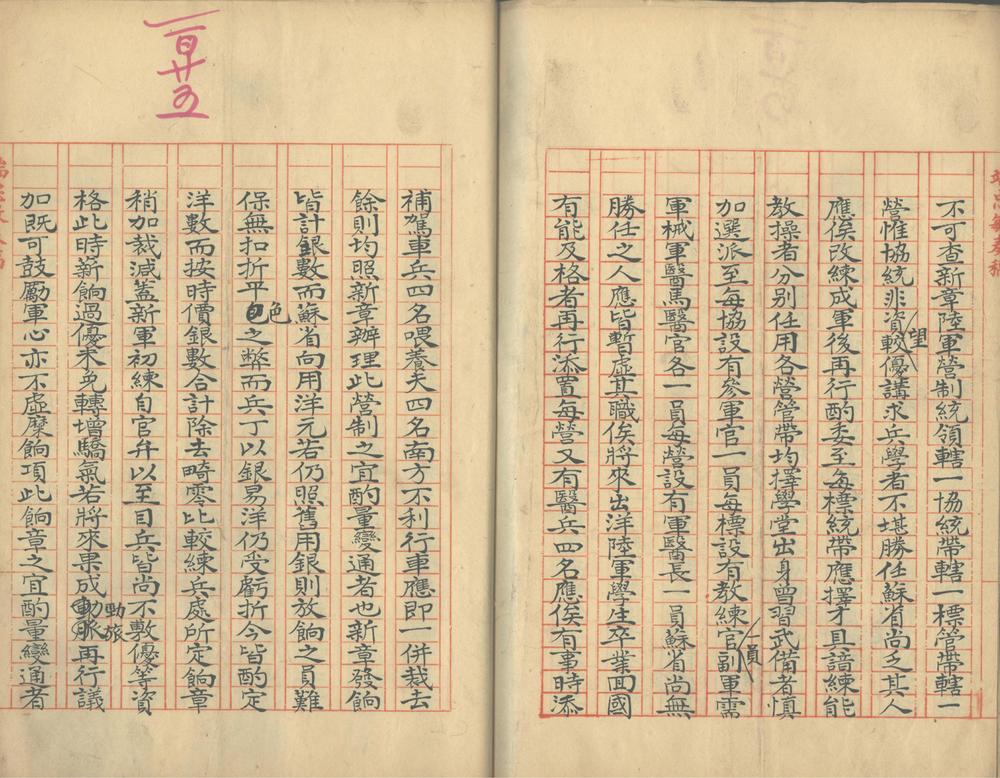 不可查新章陸軍營制統領轄一協統帶轄一標管帶轄一
營惟協統非資望較優講求兵學者不堪勝任蘇省尚乏其人
應俟改練成軍後再行酌委至每標統帶應擇才且諳練能
教操者分别任用各營管帶均擇學堂出身曾習武備者慎
加選派至每協設有參軍官一員每標設有教練官一員副軍需
軍械軍醫馬醫官各一員每營設有軍醫長一員蘇省尚無
勝任之人應皆暫虛其職俟將來出洋陸軍學生卒業回國
有能及格者再行添置每營又有醫兵四名應俟有事時添
一百廿五
補駕車兵四名喂養夫四名南方不利行車應即一併裁去
餘則均照新章辦理此營制之宜酌量變通者也新章發餉
皆計銀數而蘇省向用洋元若仍照舊用銀則放餉之員難
保無扣折平色之弊而兵丁以銀易洋仍受虧折今皆酌定
洋數而按時價銀數合計除去畸零比較練兵處所定餉章
稍加裁減蓋新軍初練自官弁以至目兵皆尚不敷優等資
格此時薪餉過優未免轉增驕氣若將來果成勁旅再行議
加既可鼓勵軍心亦不虛糜餉項此餉章之宜酌量變通者